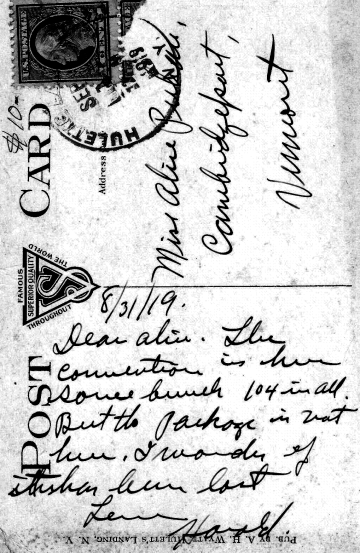 POST CARD
$10-
U.S. POSTAGE
1 CENT 1
HULETT'S
SEP
1919
N.Y.
Address
Miss Alice
Cambridgeport,
Vermont
FAMOUS
THROUGHOUT
THE WORLD
SUPERIOR QUALITY
8/31/19.
Dear Alice. The
convention is here
some bunch 104 in all.
But the package is not
here. I wonder if
it has been lost
Harold.
PUB. BY A. H. WYATT, HULETT'S LANDING, N. Y.